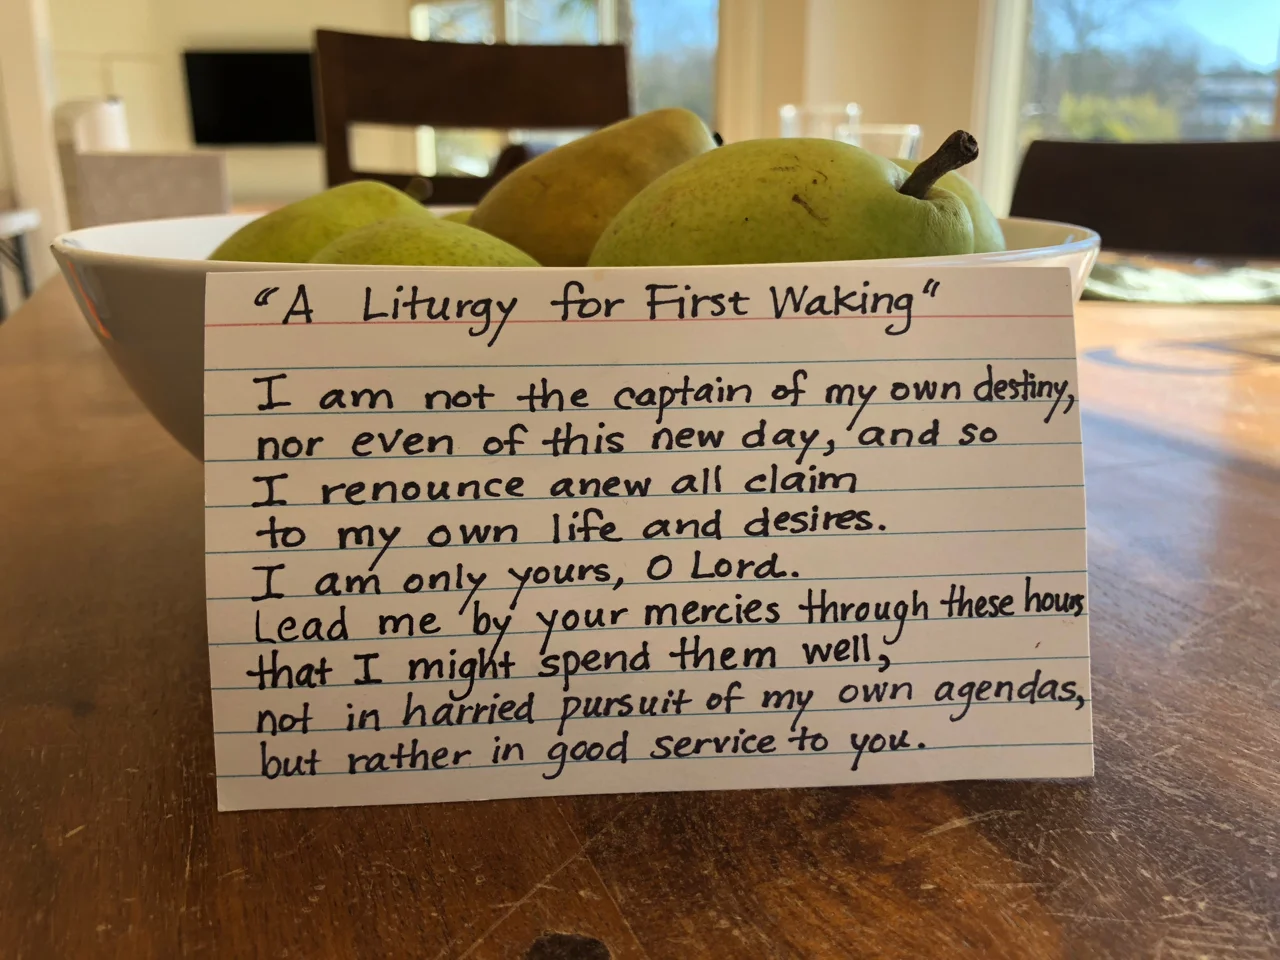 "A Liturgy for First Waking"
I am not the captain of my own destiny,
nor even of this new day, and so
I renounce anew all claim
to my own life and desires.
I am only yours, O Lord.
Lead me by your mercies through these hours
that I might spend them well,
not in harried pursuit of my own agendas,
but rather in good service to you.